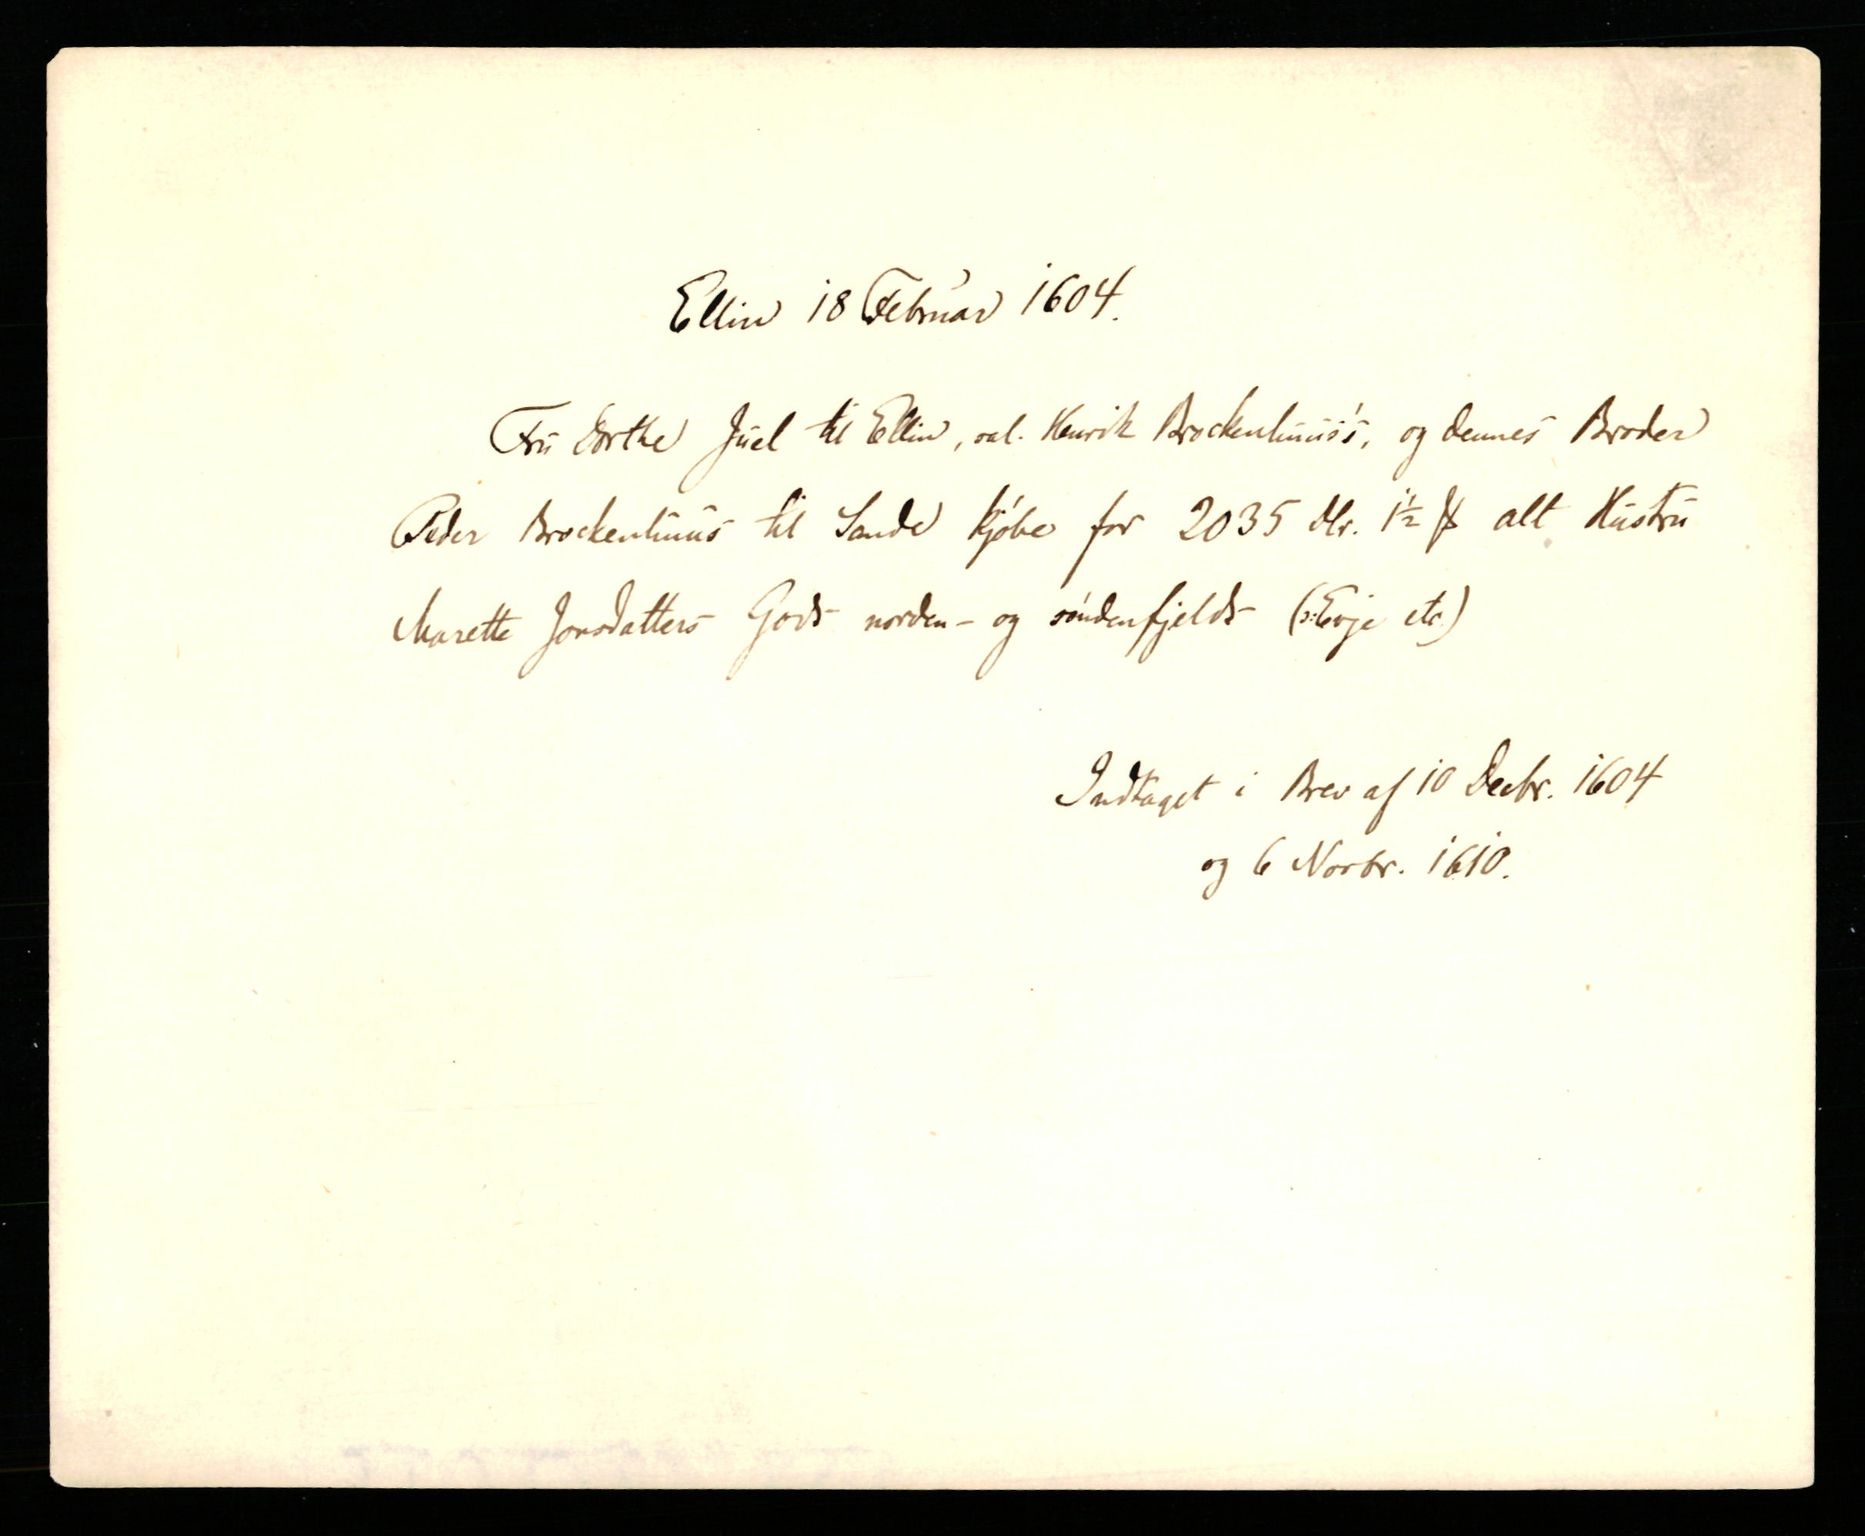 Ellin 18 Februar 1604.
Fru Dorthe Juel til Ellin, sal. Henrik Brockenhuus's, og dennes Broder
Peder Brockenhuus til Sande kjöbe for 2035 Dlr. 1½ ß alt Hustru
Marette Jonsdatters Gods norden- og söndenfjelds (ɔ: Evje etc)
Indtaget i Brev af 10 Decbr. 1604
og 6 Novbr. 1610.